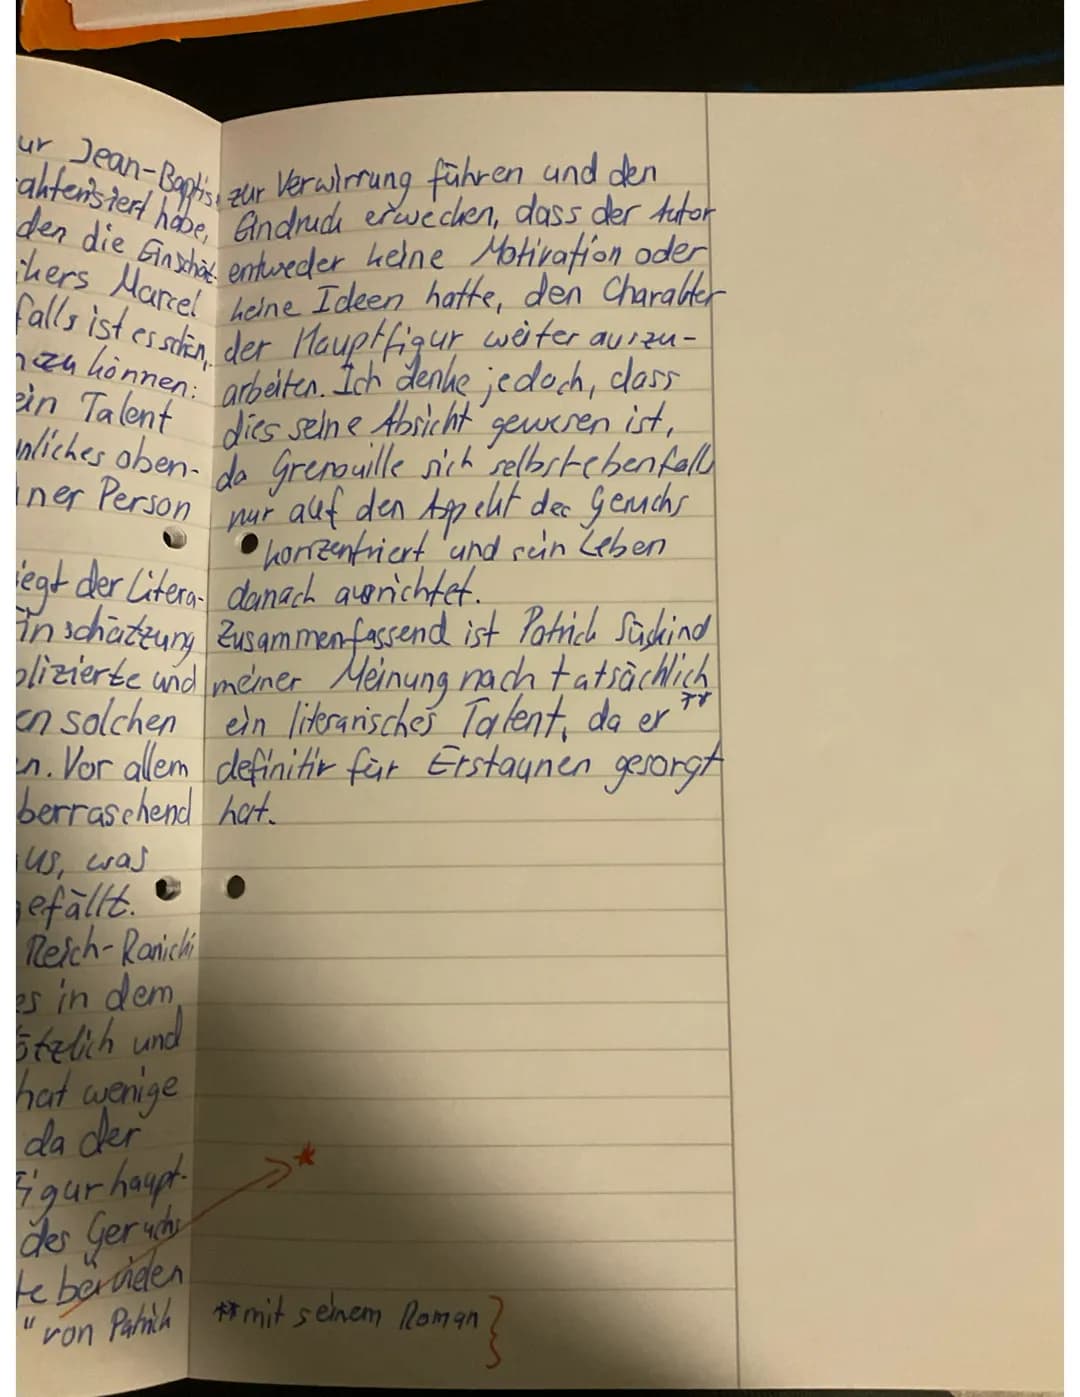 ur Jean-Baptis
akterisiert habe,
den die Einschät-
ikers Marcel
falls ist es schön,
n zu können:
ein Talent
nliches oben-
iner Person
iegt der Litera-
Einschätzung
plizierte und
en solchen
n. Vor allem
berraschend
us, was
gefällt.
Reich-Ranicki
es in dem
ötzlich und
hat wenige
da der
Figur haupt-
des Geruchs
te bei vielen
" von Patrick
zur Verwirrung führen und den
Eindruck erwecken, dass der Autor
entweder keine Motivation oder
keine Ideen hatte, den Charakter
der Hauptfigur weiter auszu-
arbeiten. Ich denke jedoch, dass
dies seine Absicht gewesen ist,
da Grenouille sich selbst ebenfalls
nur auf den Aspekt des Geruchs
konzentriert und sein Leben
danach ausrichtet.
Zusammenfassend ist Patrick Süskind
meiner Meinung nach tatsächlich
ein literarisches Talent, da er **
definitiv für Erstaunen gesorgt
hat.
*
** mit seinem Roman }